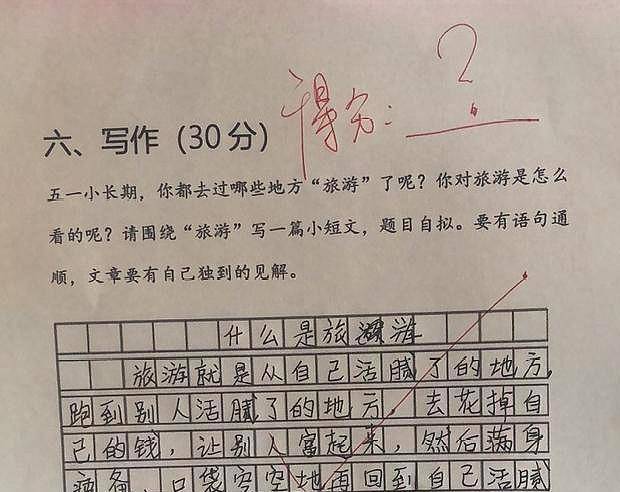 得分：?
六、写作（30分）
五一小长期，你都去过哪些地方“旅游”了呢？你对旅游是怎么
看的呢？请围绕“旅游”写一篇小短文，题目自拟。要有语句通
顺，文章要有自己独到的见解。
什么是旅游
旅游就是从自己活腻了的地方，
跑到别人活腻了的地方。去花掉自
己的钱，让别人富起来，然后满身
疲惫，口袋空空地再回到自己活腻